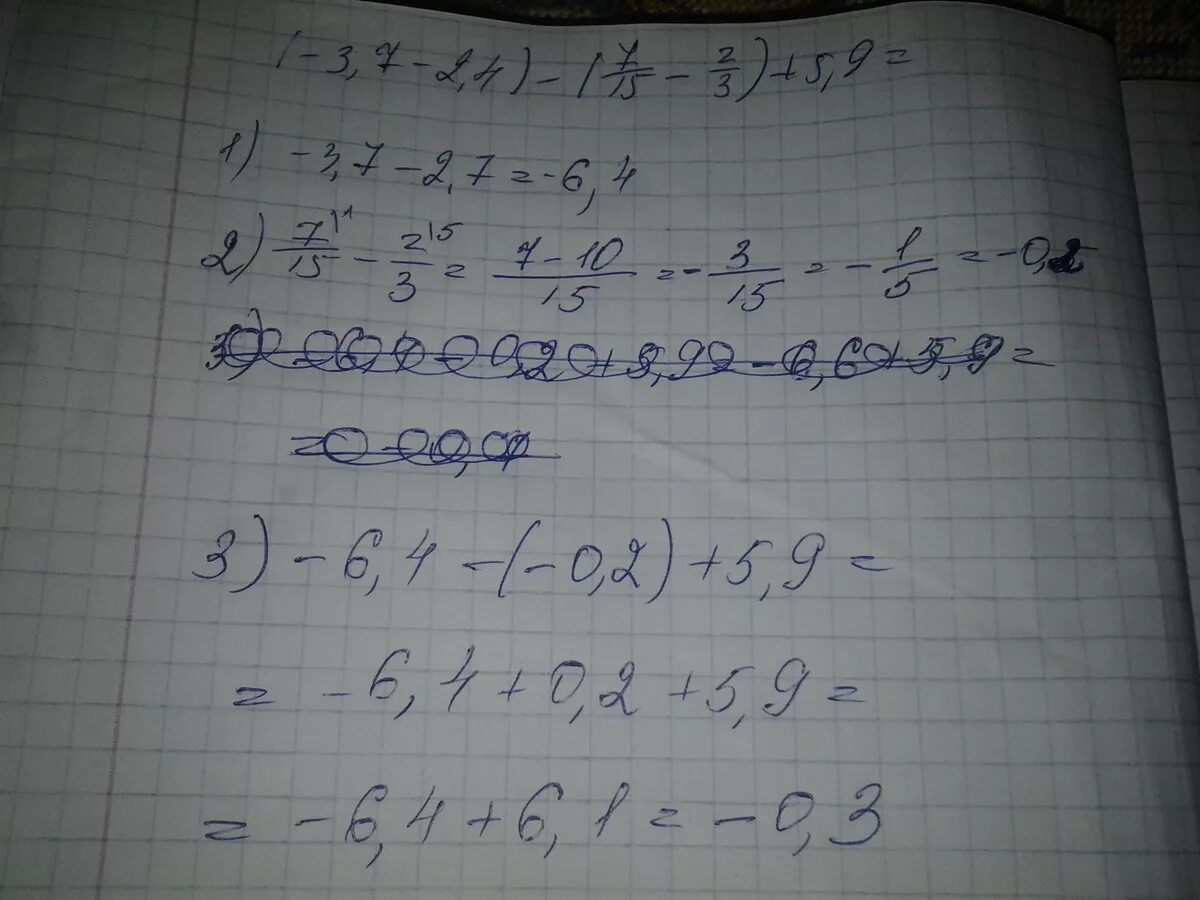 (-3,7-2,4)-(7/15-2/3)+5,9=
1) -3,7-2,7=-6,4
2) 7/15 - 2/3 = (7-10)/15 = -3/15 = -1/5 = -0,2
3) -6,4-(-0,2)+5,9=
= -6,4+0,2+5,9=
= -6,4+6,1=-0,3